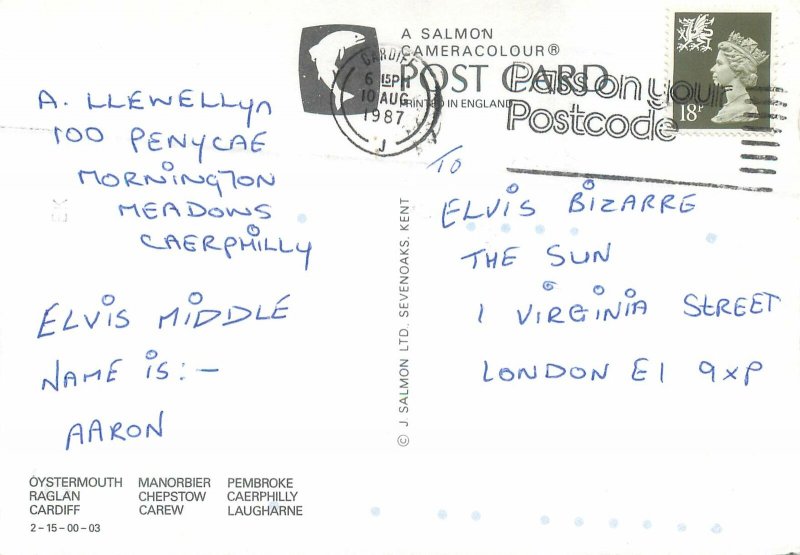 A SALMON
CAMERACOLOUR®
POST CARD
PRINTED IN ENGLAND
CARDIFF
6 15PM
10 AUG
1987
J
Pass on your
Postcode
18P
A. LLEWELLYN
100 PENYCAE
MORNINGTON
MEADOWS
CAERPHILLY
ELVIS MIDDLE
NAME IS:-
AARON
© J SALMON LTD. SEVENOAKS, KENT
TO
ELVIS BIZARRE
THE SUN
1 VIRGINIA STREET
LONDON E1 9XP
OYSTERMOUTH MANORBIER PEMBROKE
RAGLAN CHEPSTOW CAERPHILLY
CARDIFF CAREW LAUGHARNE
2-15-00-03